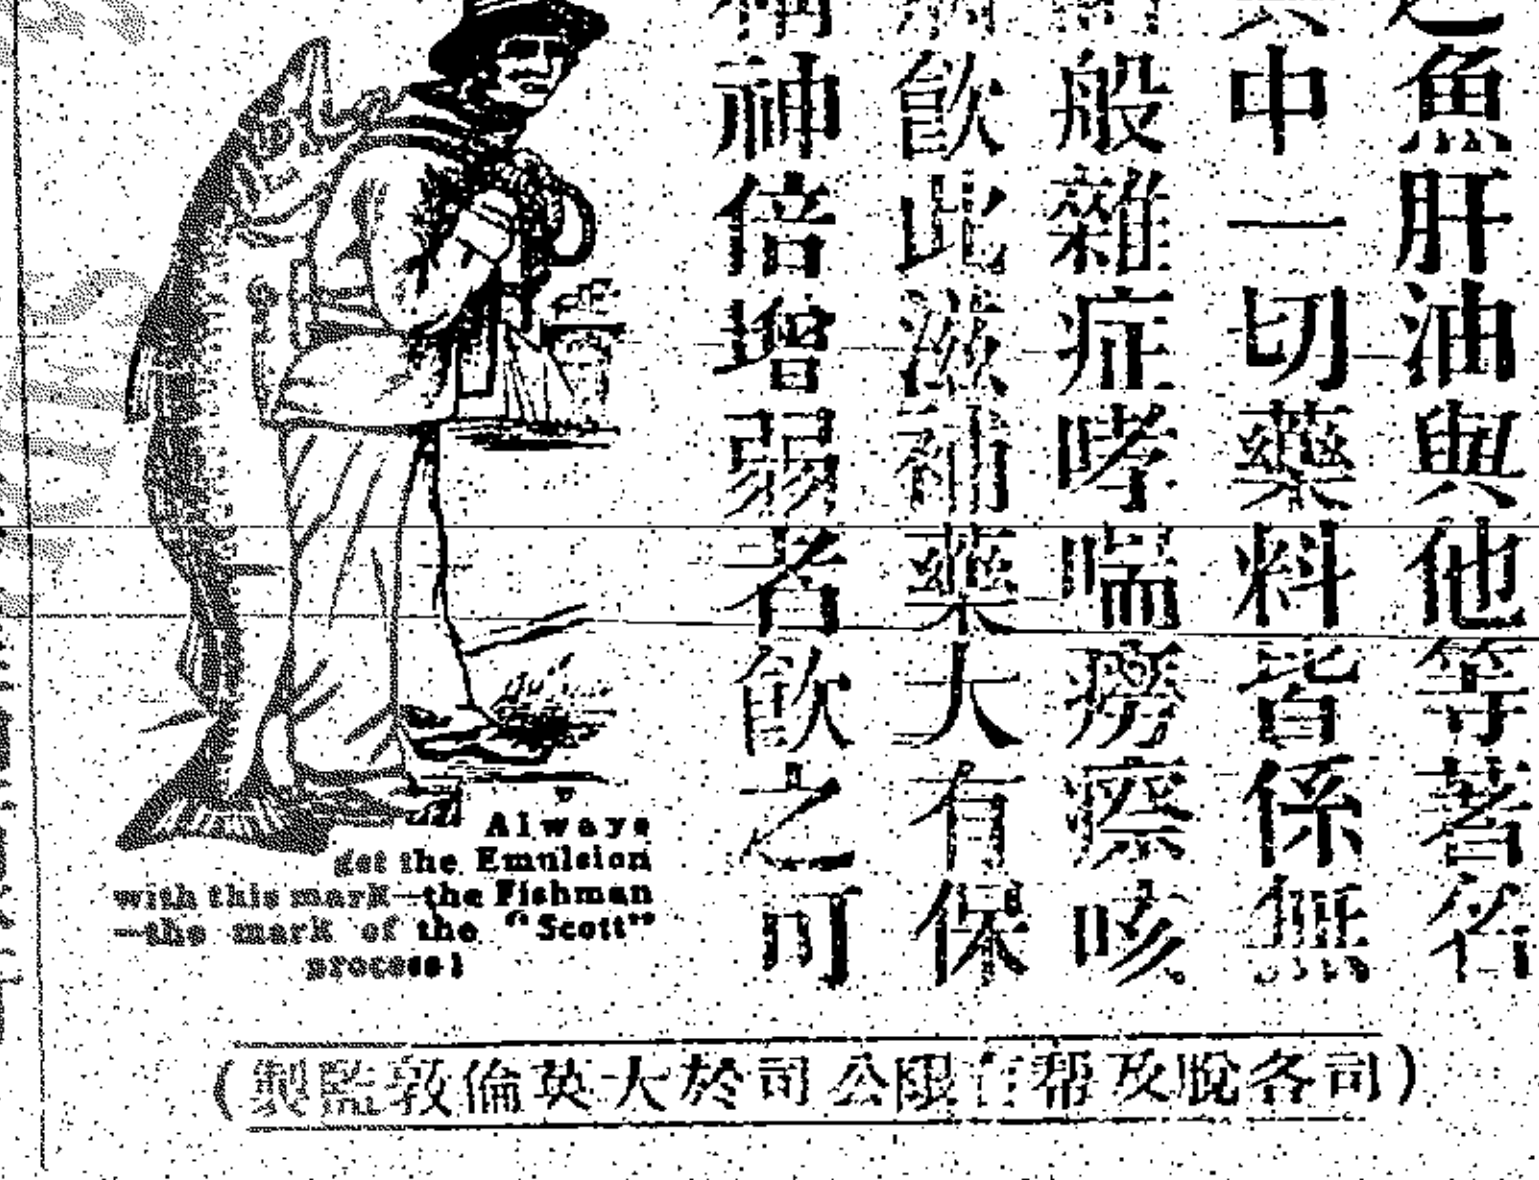 魚肝油與他等著名
中一切藥料皆係無
般雜症哮喘癆瘵咳
飲此滋補藥大有保
神倍增弱者飲之可
Always
get the Emulsion
with this mark—the Fishman
—the mark of the “Scott”
process!
(司各脫及幇有限公司於大英倫敦監製)